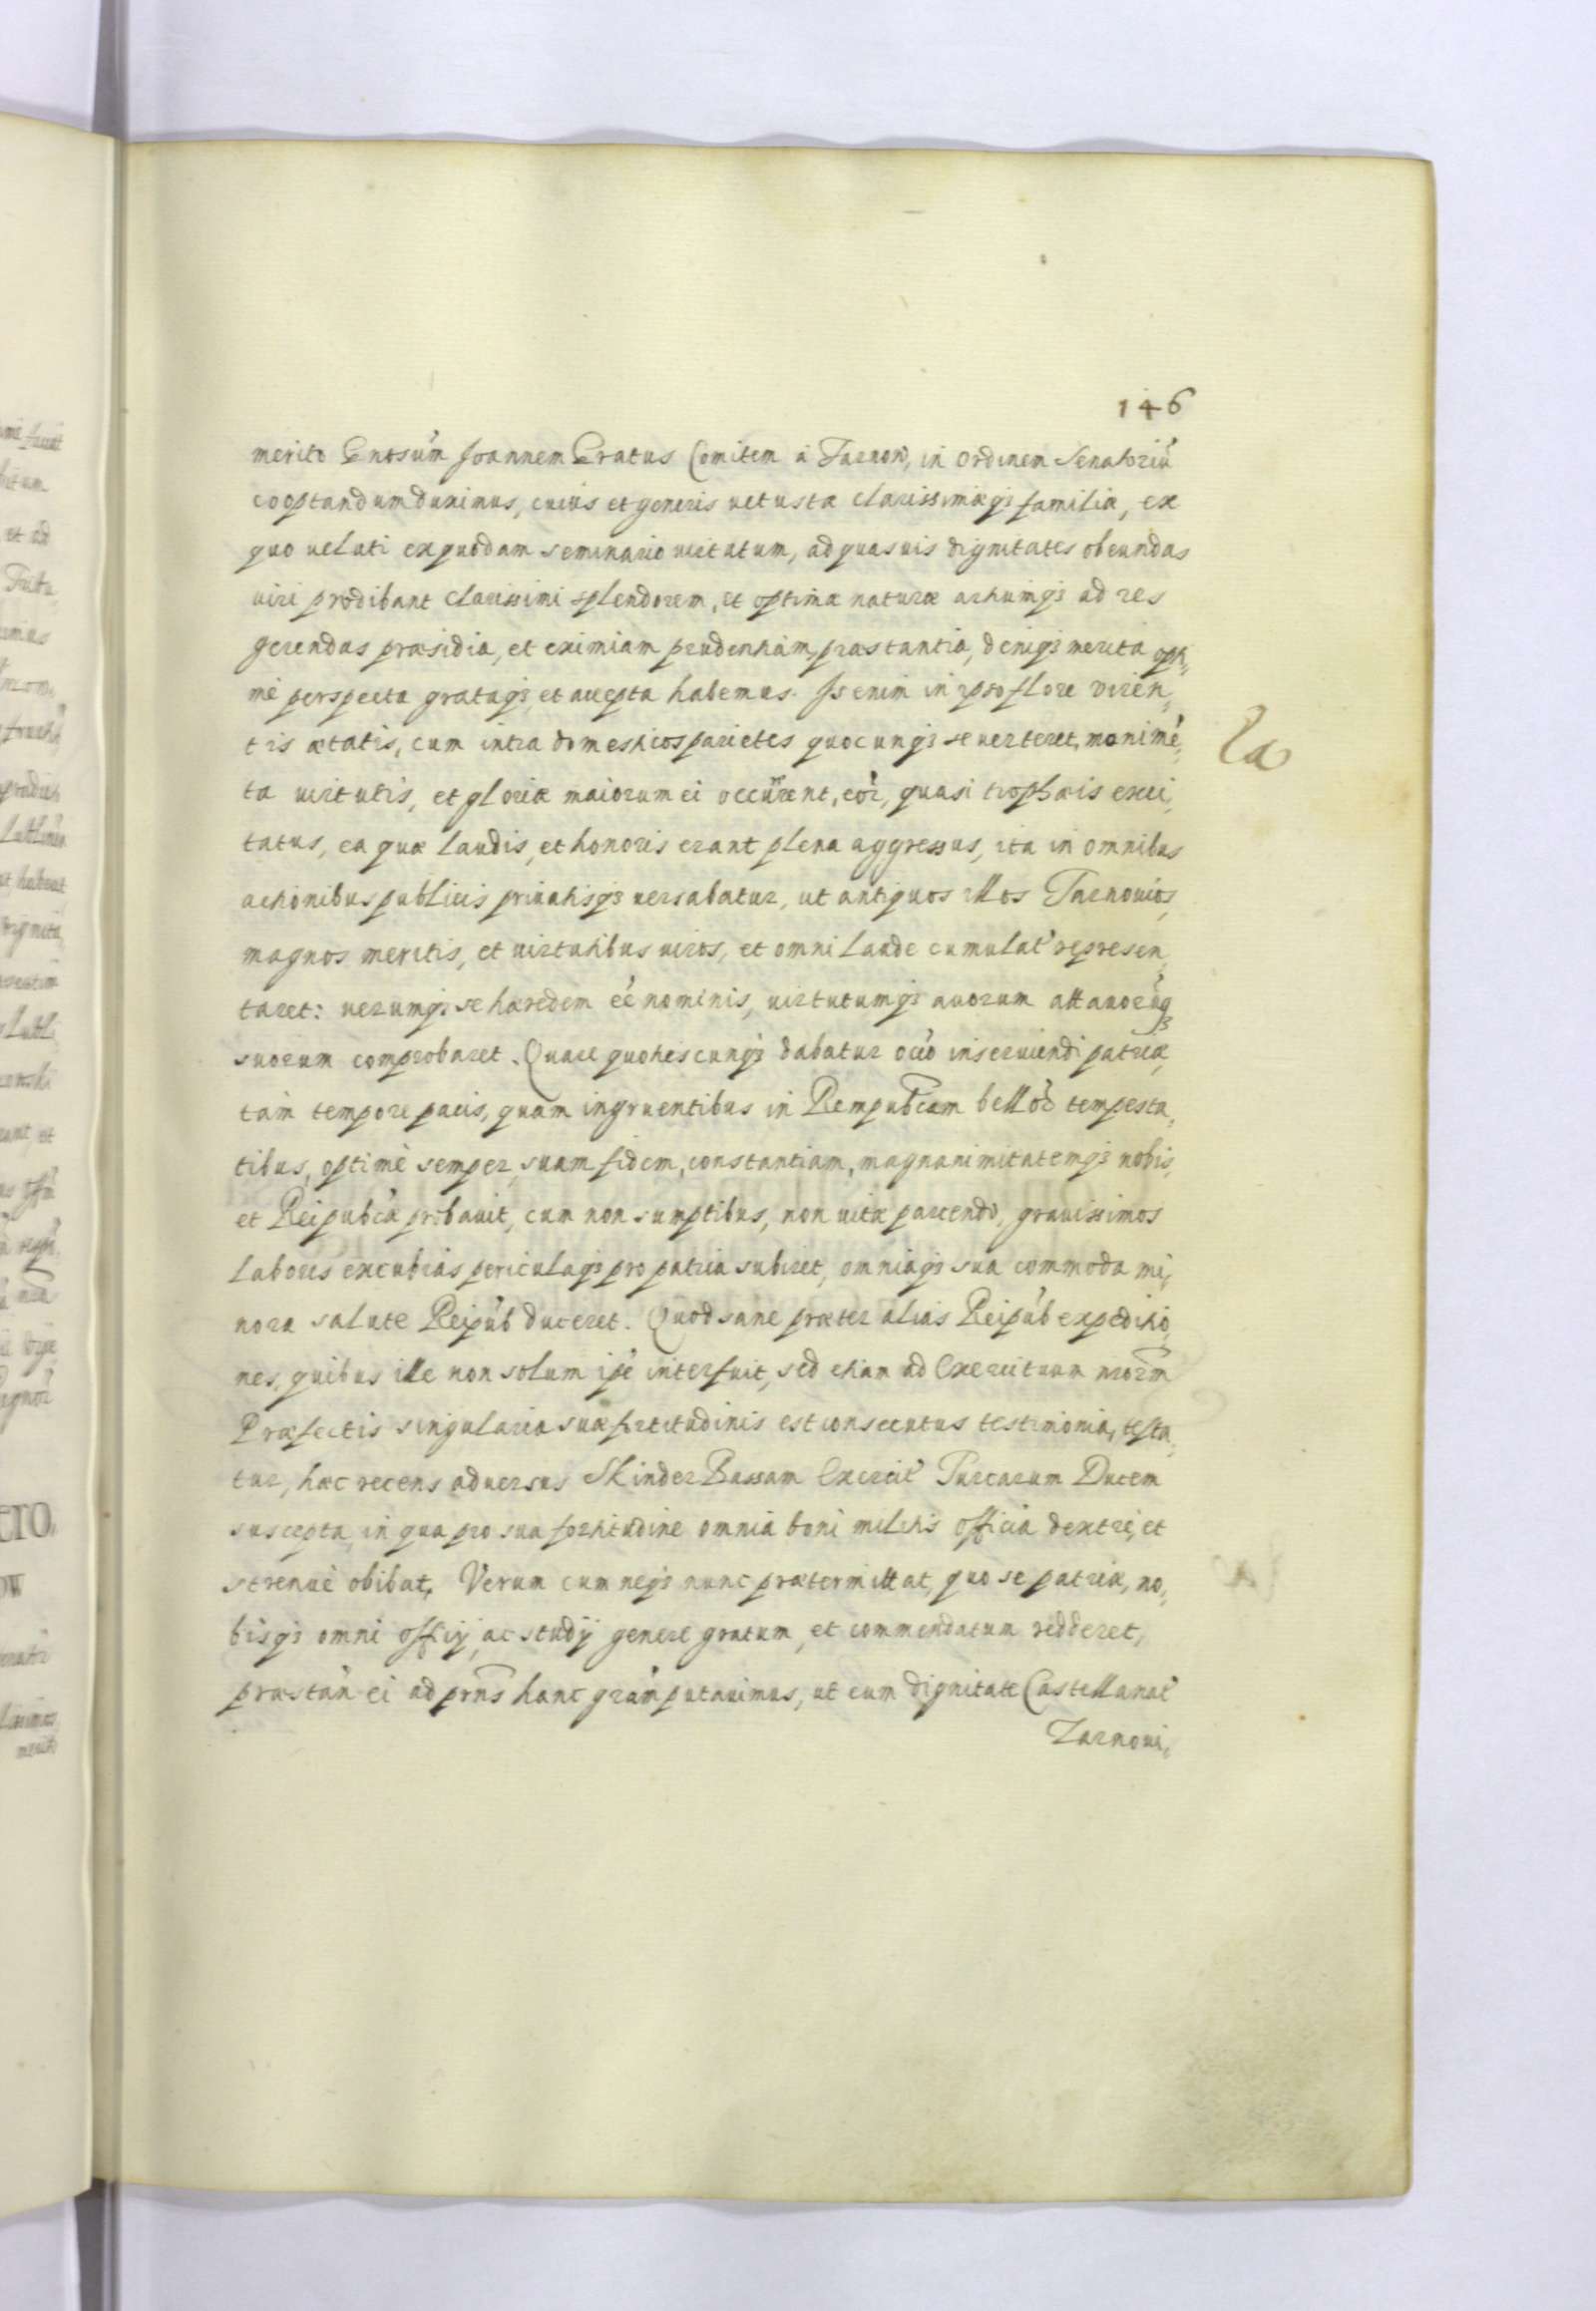 146
merito Gnosum Joannem Gratus Comitem à Tarnow, in ordinem Senatoriũ
cooptandum duximus, cuius et generis uetusta clarissimæqȝ familiæ, ex
quo ueluti ex quodam seminario uirtutum, ad quasuis dignitates obeundas
uiri prodibant clarissimi splendorem, et optimæ naturæ artiumqȝ ad res
gerendas præsidia, et eximiam prudentiam, præstantia, deniqȝ merita opti,
mè perspecta grataqȝ et accepta habemus. Is enim in ipso flore viren,
tis ætatis, cum intra domesticos parietes quocunqȝ se uerteret, monimẽ,
ta uirtutis, et gloriæ maiorum ei occurrent, eor̃, quasi trophæis exci,
tatus, ea quæ laudis, et honoris erant plena aggressus, ita in omnibus
actionibus publicis priuatisqȝ uersabatur, ut antiquos illos Tarnouios,
magnos meritis, et uirtutibus uiros, et omni laude cumulat' represen,
taret: uerumqȝ se hæredem eẽ nominis, uirtutumqȝ auorum attauorũqȝ
suorum comprobaret. Quare quotiescunqȝ dabatur occio inseruiendi patriæ,
tam tempore pacis, quam ingruentibus in Rempubcam belloȓ tempesta,
tibus, optimè semper, suam fidem, constantiam, magnanimitatemqȝ nobis,
et Reipubcæ probauit, cum non sumptibus, non uitæ parcendo, grauissimos
labores excubias periculaqȝ pro patria subiret, omniaqȝ sua commoda mi,
nora salute Reipub duceret. Quod sane præter alias Reipub expeditio,
nes, quibus ille non solum ipe interfuit, sed etiam ad Exercituum nrorm
Præfectis singularia suæ fortitudinis est consecutus testimonia, testa,
tur, hæc recens aduersus Skinder Bassam Exercit' Turcarum Ducem
suscepta, in qua pro sua fortitudine omnia boni militis officia dextrè, et
strenuè obibat. Verum cum neqȝ nunc prætermittat, quo se patriæ, no,
bisqȝ omni officij, ac studij genere gratum, et commendatum redderet,
præstañ ei ad prñs hanc grãm putauimus, ut eum dignitate Castellanat'
Zarnoui,